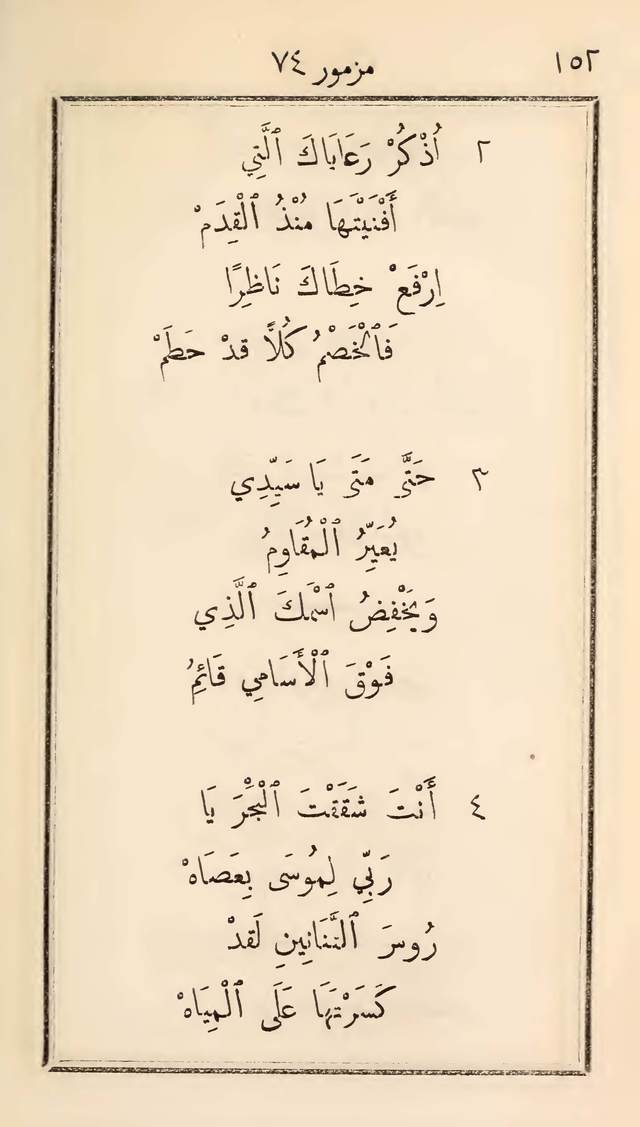 ١٥٢ مزمور ٧٤
٢ اُذْكُرْ رَعَابَاكَ ٱلَّتِي
أَفْنَيْتَهَا مُنْذُ ٱلْقِدَمْ
اِرْفَعْ خِطَاكَ نَاظِرًا
فَٱلْخَصْمُ كُلاًّ قدْ حَطَمْ
٣ حَتَّى مَتَى يَا سَيِّدِي
يُعَيِّرُ ٱلْمُقَاوِمُ
وَيَخْفِضُ ٱسْمَكَ ٱلَّذِي
فَوْقَ ٱلْأَسَامِي قَائِمُ
٤ أَنْتَ شَقَقْتَ ٱلْبَحْرَ يَا
رَبِّي لِمُوسَى بِعَصَاهْ
رُوسَ ٱلتَّنَانِينِ لَقدْ
كَسَرْتَهَا عَلَى ٱلْمِيَاهْ